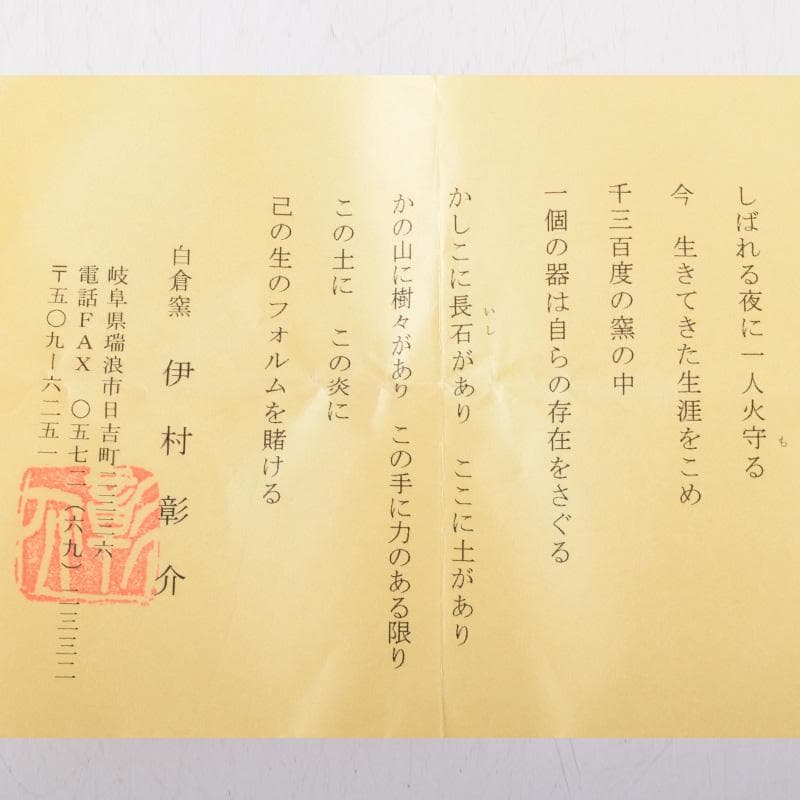 しばれる夜に一人火守る
も
今　生きてきた生涯をこめ
千三百度の窯の中
一個の器は自らの存在をさぐる
かしこに長石があり　ここに土があり
いし
かの山に樹々があり　この手に力のある限り
この土に　この炎に
己の生のフォルムを賭ける
白倉窯　伊村彰介
岐阜県瑞浪市日吉町二三三六
電話FAX　〇五七二（六九）二三三二
〒五〇九ー六二五一